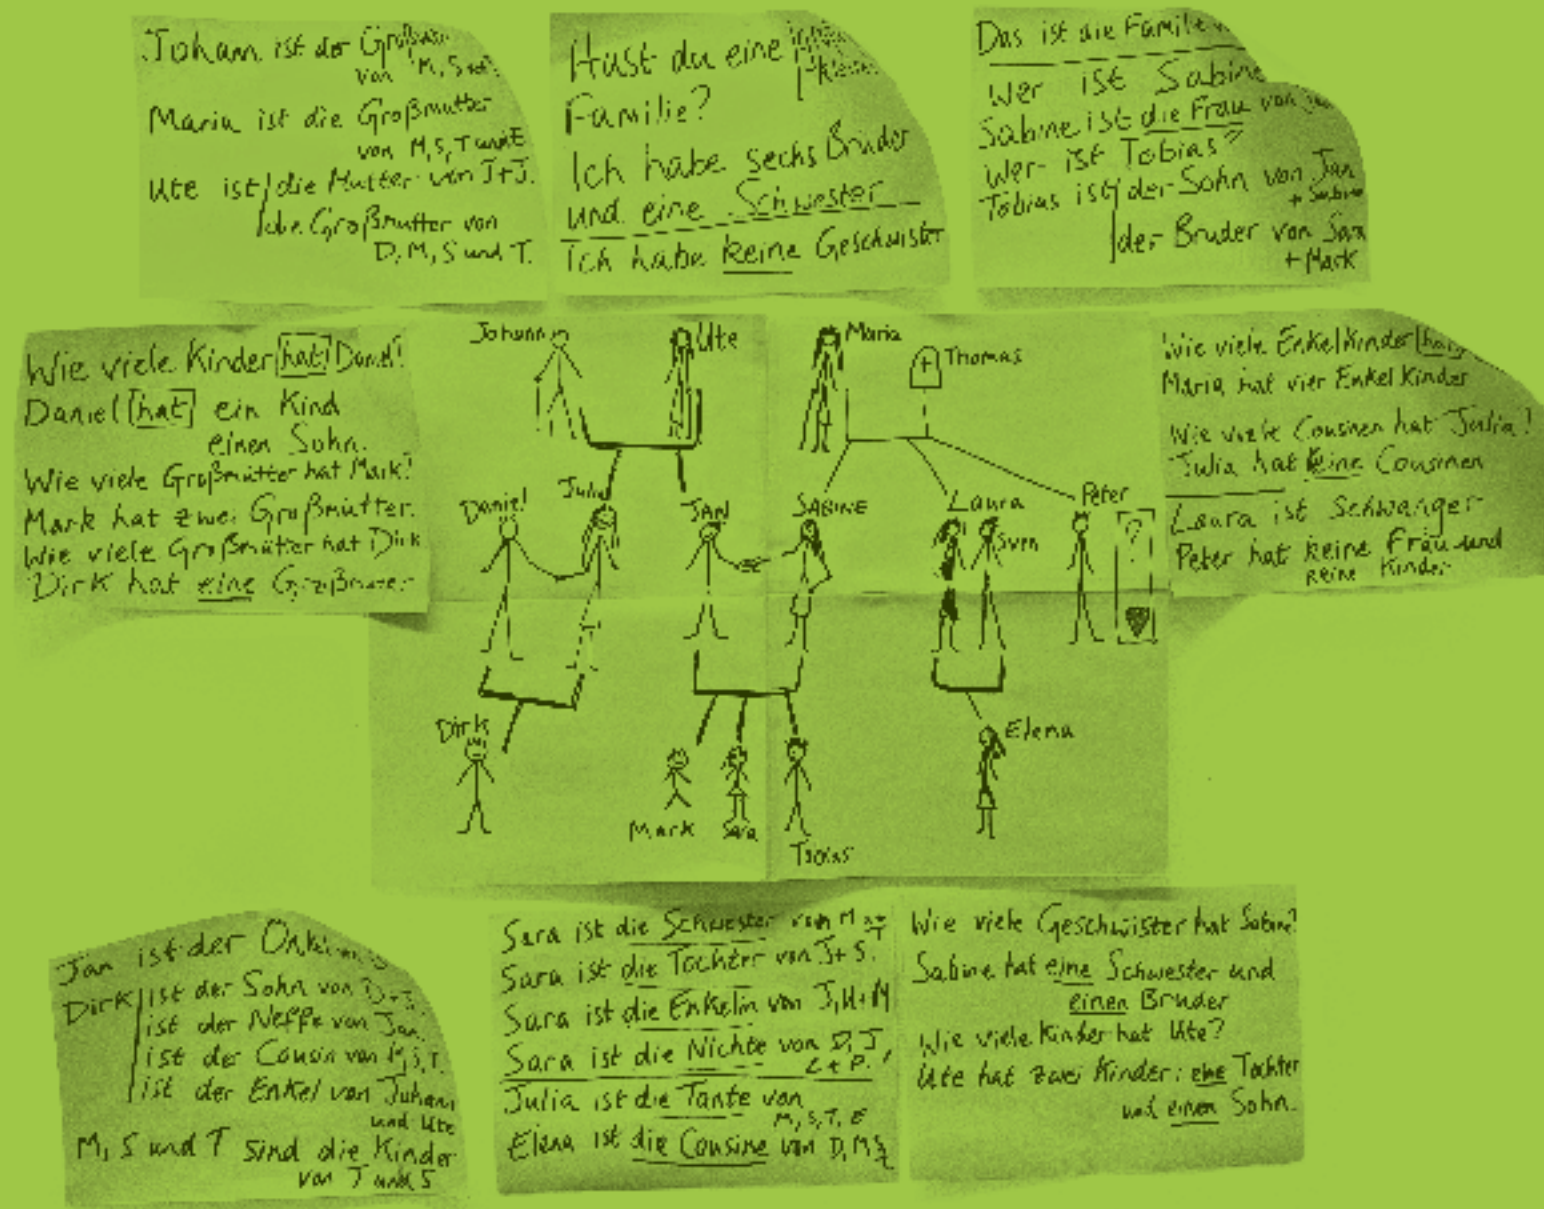 Johann ist der
von M, S
Maria ist die Großmutter
von M, S, T und E
Ute ist die Mutter von J+J.
die Großmutter von
D, M, S und T.
Hast du eine
Familie?
Ich habe sechs Brüder
und eine Schwester
Ich habe keine Geschwister
Das ist die Familie
Wer ist Sabine
Sabine ist die Frau von
Wer ist Tobias?
Tobias ist der Sohn von Jan
+ Sabine
der Bruder von Sara
+ Mark
Wie viele Kinder hat Daniel?
Daniel hat ein Kind
einen Sohn.
Wie viele Großmütter hat Mark?
Mark hat zwei Großmütter.
Wie viele Großmütter hat Dirk
Dirk hat eine Großmutter
Johann
Ute
Maria
Thomas
Daniel
Julia
JAN
SABINE
Laura
Sven
Peter
?
Dirk
Mark
Sara
Tobias
Elena
Wie viele Enkelkinder
Maria hat vier Enkelkinder
Wie viele Cousinen hat Julia?
Julia hat keine Cousinen
Laura ist schwanger
Peter hat keine Frau und
keine Kinder
Jan ist der
Dirk ist der Sohn von D+J.
ist der Neffe von Jan
ist der Cousin von M, S, T.
ist der Enkel von Johann
und Ute
M, S und T sind die Kinder
von J und S
Sara ist die Schwester von M + T
Sara ist die Tochter von J+S.
Sara ist die Enkelin von J, U+M
Sara ist die Nichte von D, J,
L + P.
Julia ist die Tante von
M, S, T, E
Elena ist die Cousine von D, M,
Wie viele Geschwister hat Sabine?
Sabine hat eine Schwester und
einen Bruder
Wie viele Kinder hat Ute?
Ute hat zwei Kinder: eine Tochter
und einen Sohn.